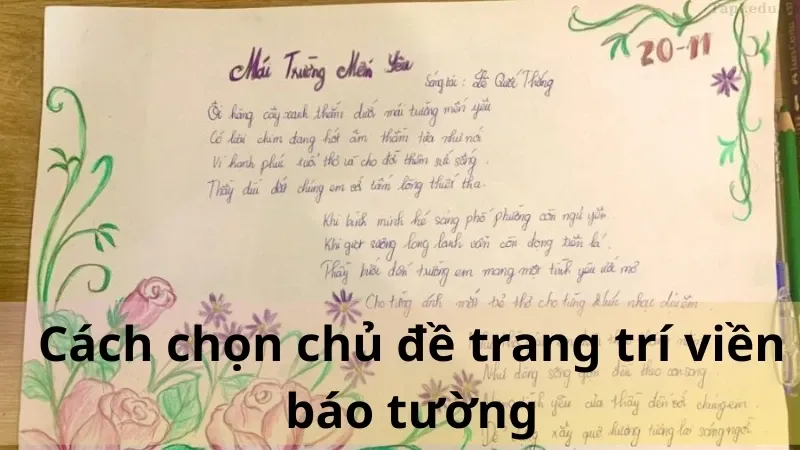 20-11
Mái Trường Mến Yêu
Sáng tác : Lê Quốc Thắng
Ôi hàng cây xanh thắm dưới mái trường mến yêu
Có loài chim đang hót âm thầm tựa như nói
Vì hạnh phúc tuổi thơ và cho đời thêm sức sống.
Thầy dìu dắt chúng em với tấm lòng thiết tha.
Khi bình minh hé sáng phố phường còn ngủ yên.
Khi giọt sương long lanh vẫn còn đọng trên lá.
Thầy bước đến trường em mang một tình yêu ước mơ
Cho từng ánh mắt trẻ thơ cho từng khúc nhạc dịu êm.
Cách chọn chủ đề trang trí viền
Như dòng sông đều theo cơn sóng.
báo tường
tình yêu của thầy đến với chúng em.
xây quê hương tương lai sáng ngời